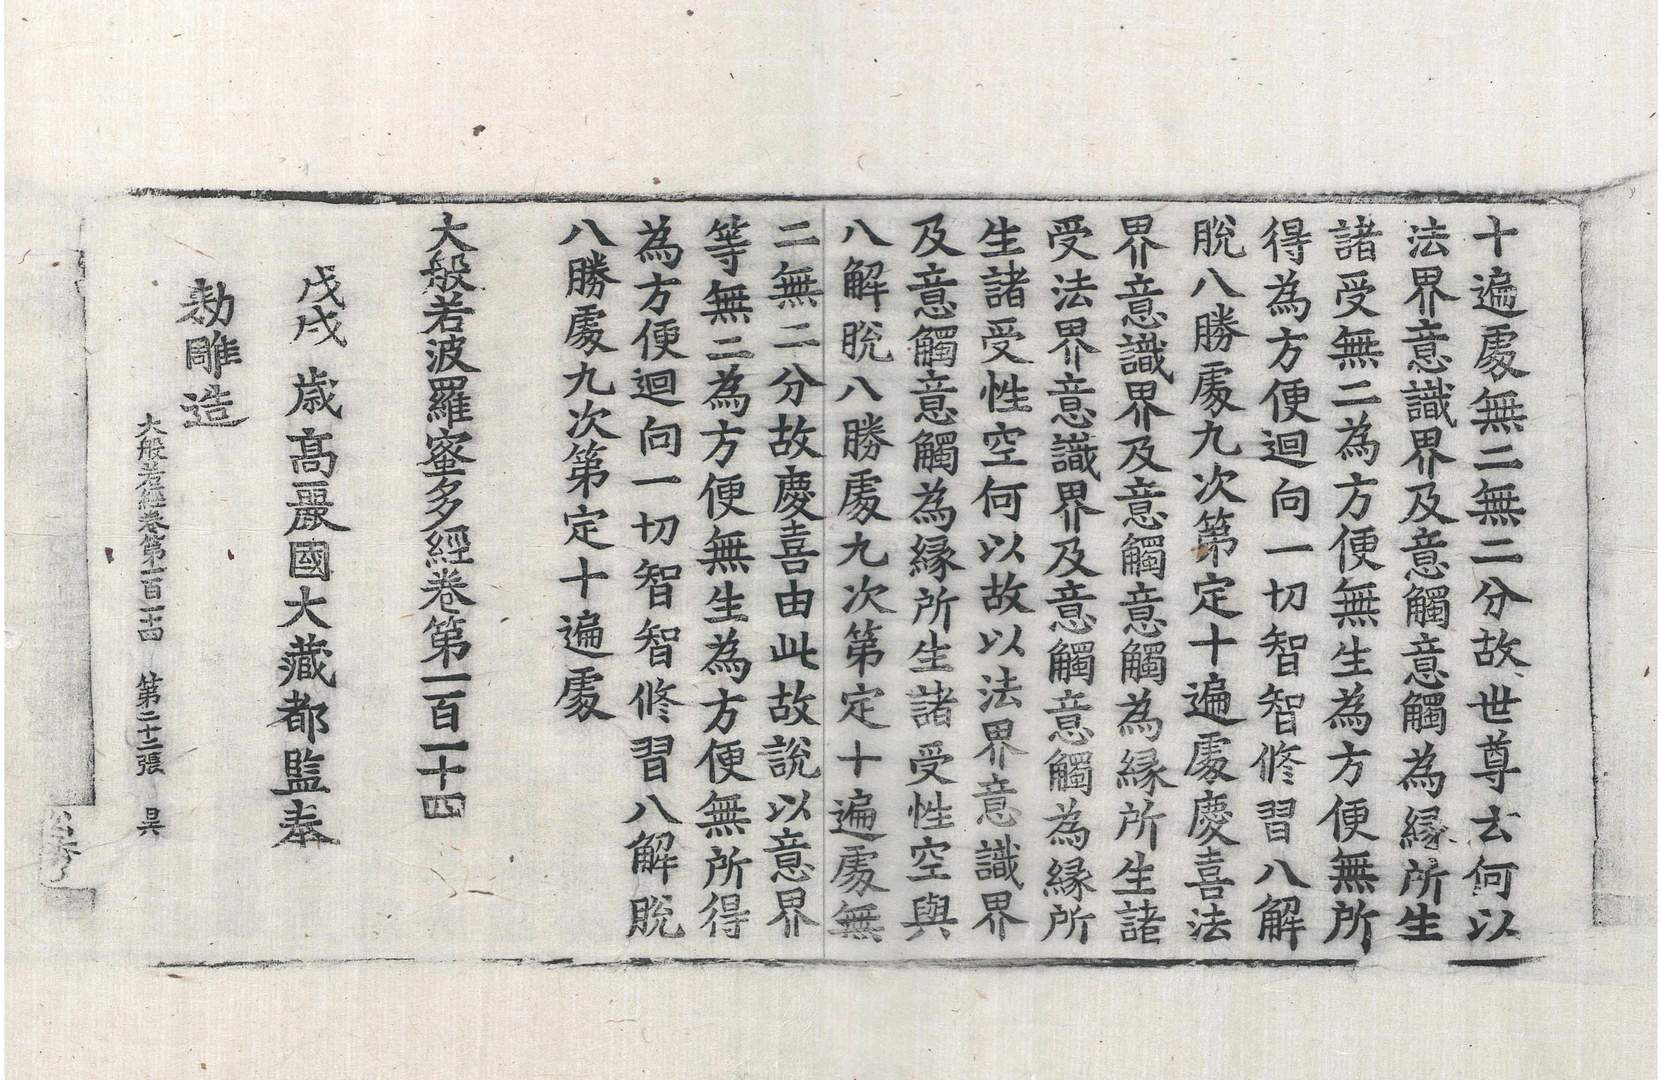 十遍處無二無二分故世尊云何以
法界意識界及意觸意觸為緣所生
諸受無二為方便無生為方便無所
得為方便迴向一切智智修習八解
脫八勝處九次第定十遍處慶喜法
界意識界及意觸意觸為緣所生諸
受法界意識界及意觸意觸為緣所
生諸受性空何以故以法界意識界
及意觸意觸為緣所生諸受性空與
八解脫八勝處九次第定十遍處無
二無二分故慶喜由此故說以意界
等無二為方便無生為方便無所得
為方便迴向一切智智修習八解脫
八勝處九次第定十遍處
大般若波羅蜜多經卷第一百一十四
戊戌歲高麗國大藏都監奉
勅雕造
大般若經卷第一百一十四 第二十二張 昃